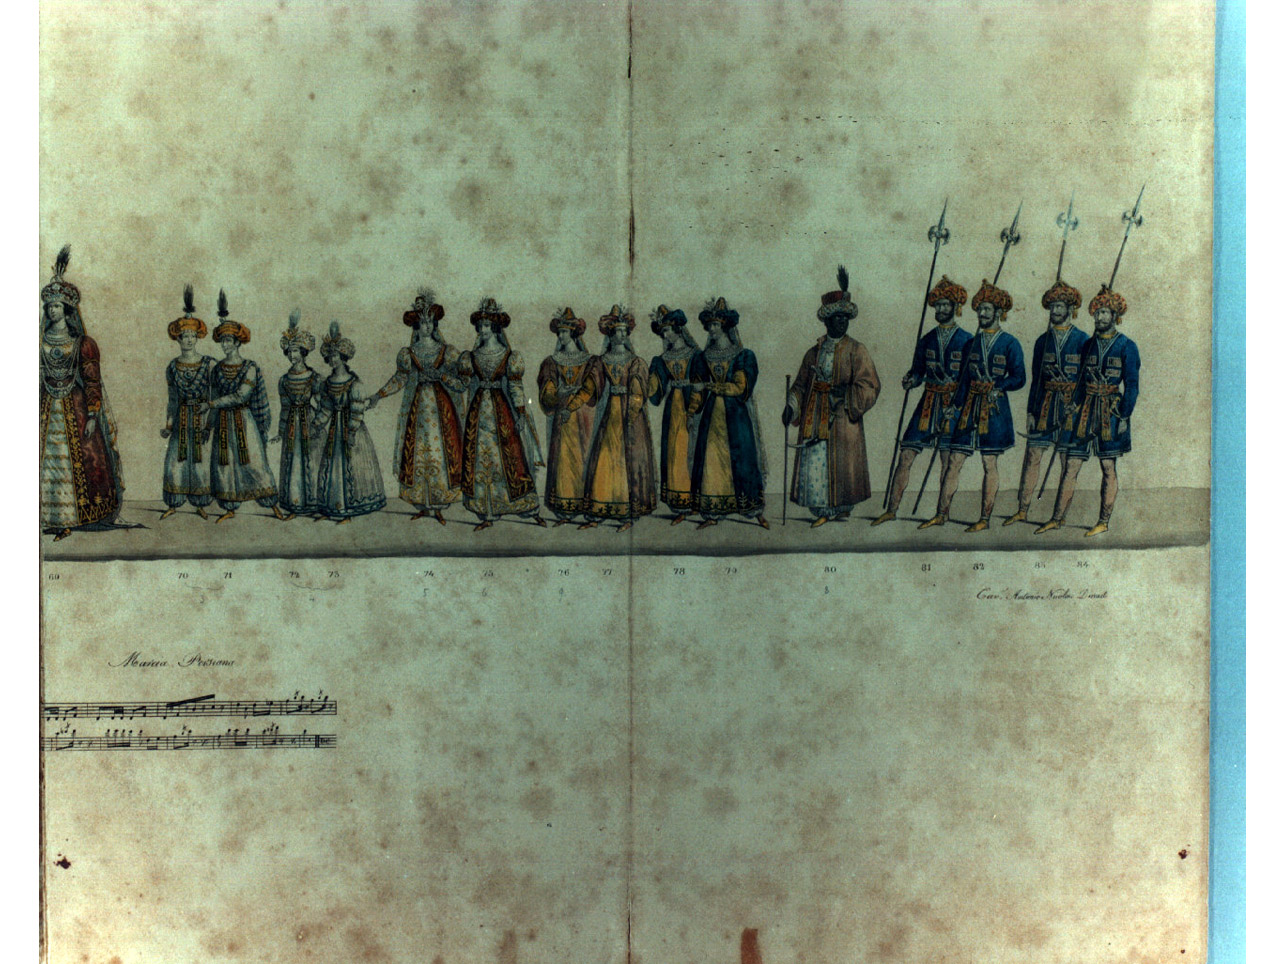 69 70 71 72 73 74 75 76 77 78 79 80 81 82 83 84
Cav. Antonio
Marcia Persiana